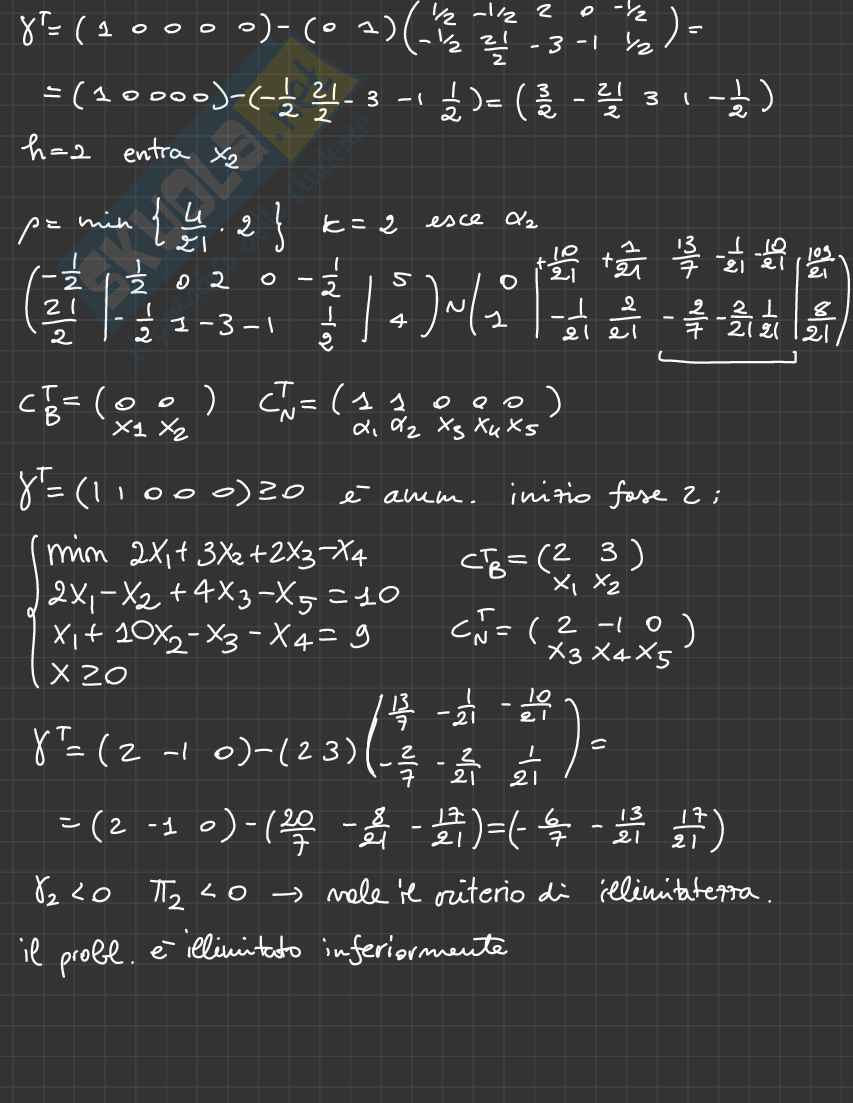 γᵀ= (1 0 0 0 0)-(0 1)(1/2 -1/2 2 0 -1/2
-1/2 21/2 -3 -1 1/2) =
= (1 0 0 0 0)-(-1/2 21/2 -3 -1 1/2)= (3/2 -21/2 3 1 -1/2)
h=2 entra x₂
ρ= min {4/21 · 2} k=2 esce α₂
(-1/2 | 1/2 0 2 0 -1/2 | 5
21/2 | -1/2 1 -3 -1 1/2 | 4) ~ (0 | +10/21 +1/21 13/7 -1/21 -10/21 | 109/21
1 | -1/21 2/21 -2/7 -2/21 1/21 | 8/21)
C_Bᵀ= (0 0) C_Nᵀ= (1 1 0 0 0)
x1 x2 α₁ α₂ x3 x4 x5
γᵀ= (1 1 0 0 0) ≥0 è amm. inizio fase 2;
{min 2x₁+3x₂+2x₃-x₄ C_Bᵀ= (2 3)
x₁ x₂
2x₁-x₂+4x₃-x₅=10
x₁+10x₂-x₃-x₄=9 C_Nᵀ= (2 -1 0)
x3 x4 x5
x≥0
γᵀ= (2 -1 0)-(2 3)(13/7 -1/21 -10/21
-2/7 -2/21 1/21) =
= (2 -1 0)-(20/7 -8/21 -17/21)=(-6/7 -13/21 17/21)
γ₂<0 π₂<0 → vale il criterio di illimitatezza.
il probl. è illimitato inferiormente
SKUOLA.net